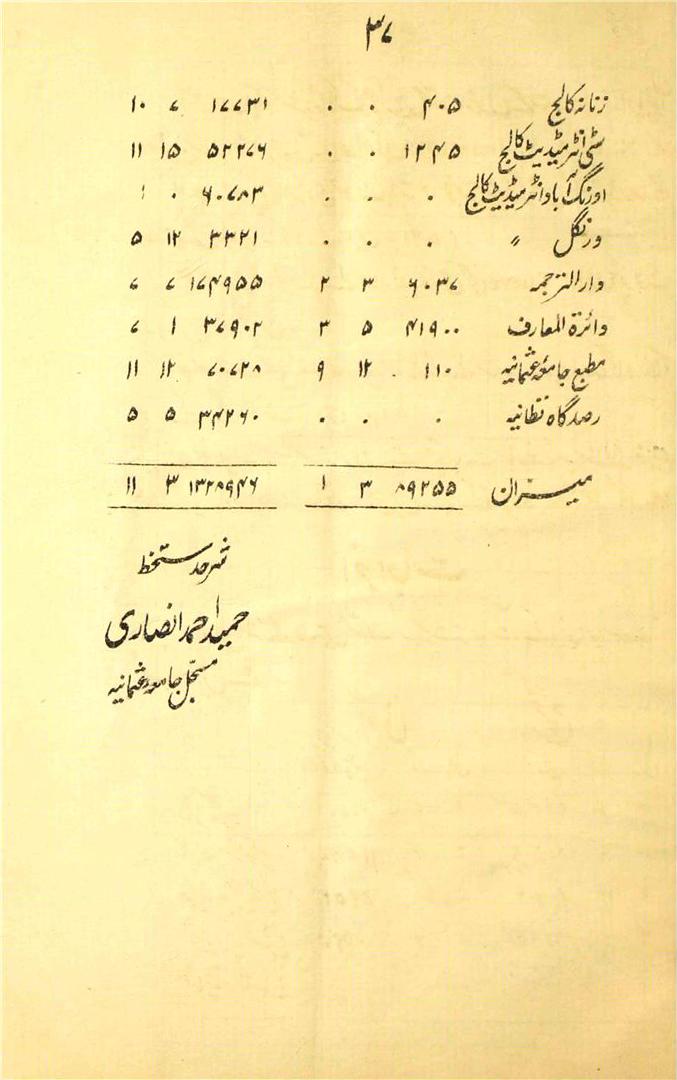 ۳۷
زنانہ کالج ۴۰۵ ۰ ۰ ۱۷۷۳۱ ۷ ۱۰
سٹی انٹرمیڈیٹ کالج ۱۲۴۵ ۰ ۰ ۵۲۲۷۶ ۱۵ ۱۱
اورنگ آباد انٹرمیڈیٹ کالج ۰ ۰ ۰ ۶۰۷۸۳ ۰ ۱
ورنگل 〃 ۰ ۰ ۰ ۳۳۲۱ ۱۲ ۵
دارالترجمہ ۶۰۳۷ ۳ ۲ ۱۷۴۹۵۵ ۷ ۷
دائرۃ المعارف ۴۱۹۰۰ ۵ ۳ ۳۷۹۰۲ ۱ ۷
مطبع جامعہ عثمانیہ ۱۱۰ ۱۲ ۹ ۷۰۷۲۸ ۱۲ ۱۱
رصدگاہ نظامیہ ۰ ۰ ۰ ۳۴۲۶۰ ۵ ۵
میزان ۸۹۲۵۵ ۳ ۱ ۱۳۲۸۹۴۶ ۳ ۱۱
شرحد ستخط
حمید احمد انصاری
مسجل جامعہ عثمانیہ